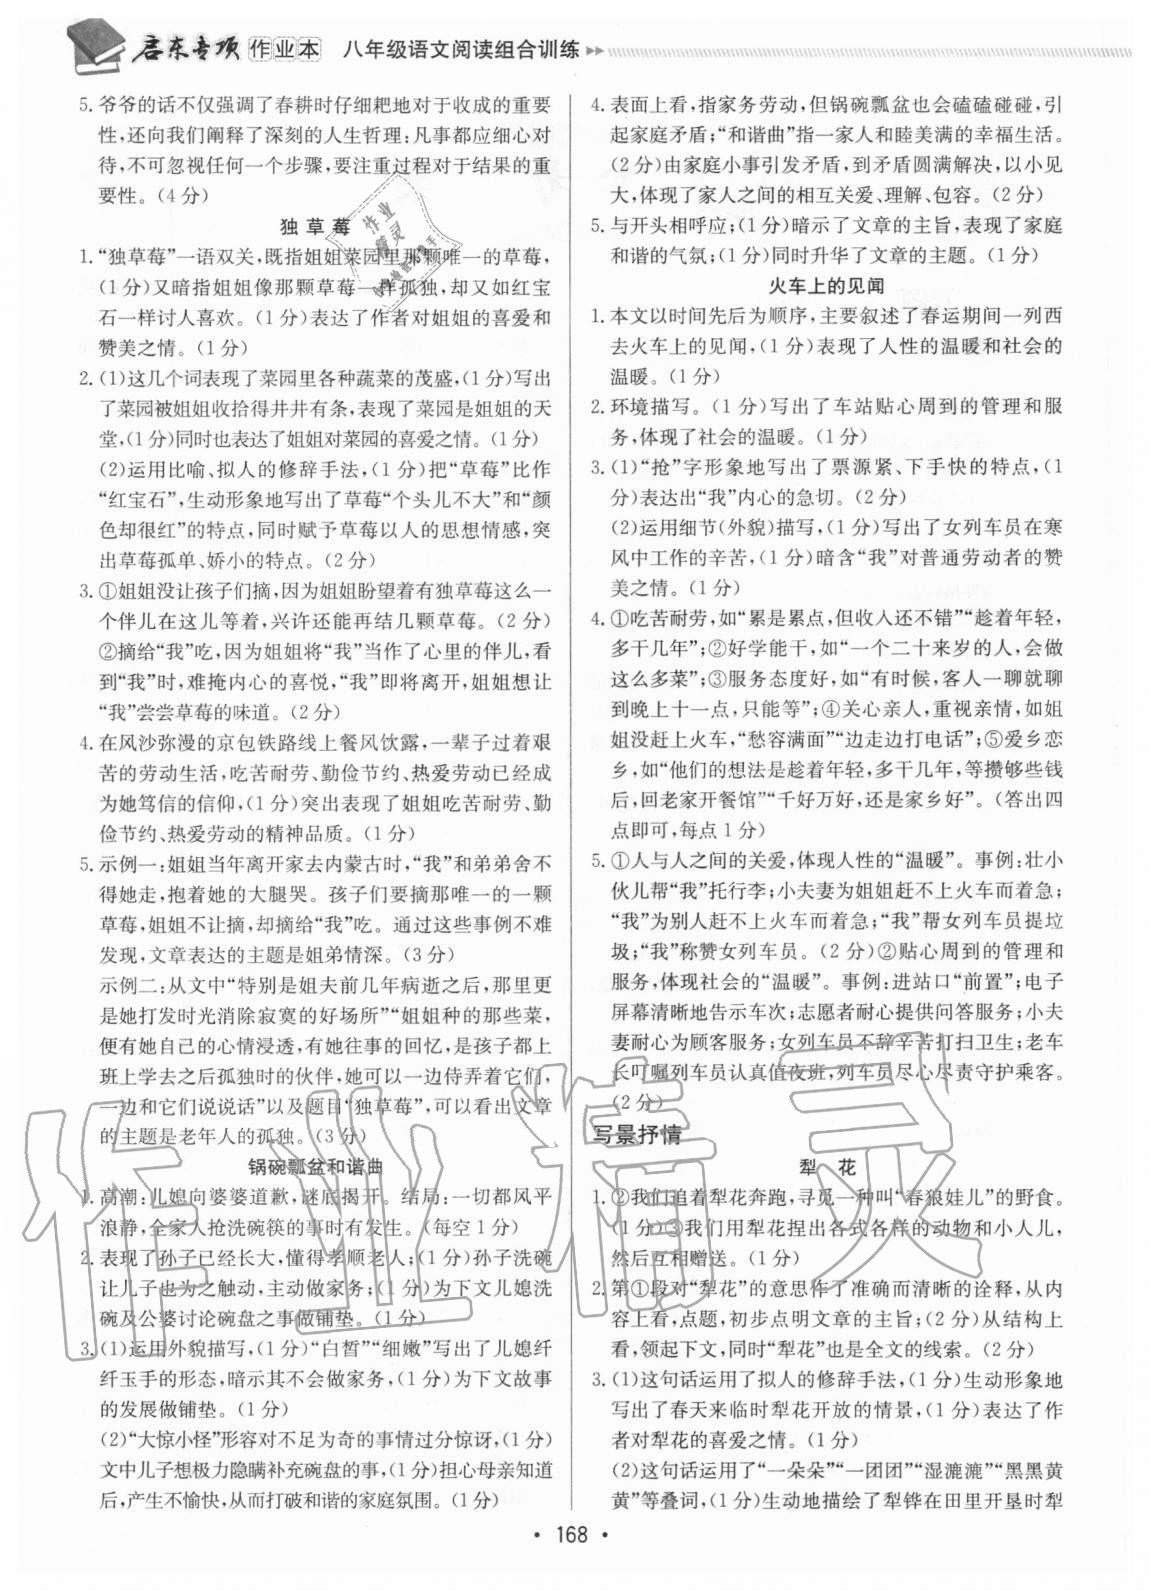 启东专项 作业本 八年级语文阅读组合训练
5. 爷爷的话不仅强调了春耕时仔细耙地对于收成的重要
性,还向我们阐释了深刻的人生哲理:凡事都应细心对
待,不可忽视任何一个步骤,要注重过程对于结果的重
要性。(4 分)
独 草 莓
1. “独草莓”一语双关,既指姐姐菜园里那颗唯一的草莓,
(1 分)又暗指姐姐像那颗草莓一样孤独,却又如红宝
石一样讨人喜欢。(1 分)表达了作者对姐姐的喜爱和
赞美之情。(1 分)
2. (1)这几个词表现了菜园里各种蔬菜的茂盛,(1 分)写出
了菜园被姐姐收拾得井井有条,表现了菜园是姐姐的天
堂,(1 分)同时也表达了姐姐对菜园的喜爱之情。(1 分)
(2)运用比喻、拟人的修辞手法,(1 分)把“草莓”比作
“红宝石”,生动形象地写出了草莓“个头儿不大”和“颜
色却很红”的特点,同时赋予草莓以人的思想情感,突
出草莓孤单、娇小的特点。(2 分)
3. ①姐姐没让孩子们摘,因为姐姐盼望着有独草莓这么一
个伴儿在这儿等着,兴许还能再结几颗草莓。(2 分)
②摘给“我”吃,因为姐姐将“我”当作了心里的伴儿,看
到“我”时,难掩内心的喜悦,“我”即将离开,姐姐想让
“我”尝尝草莓的味道。(2 分)
4. 在风沙弥漫的京包铁路线上餐风饮露,一辈子过着艰
苦的劳动生活,吃苦耐劳、勤俭节约、热爱劳动已经成
为她笃信的信仰,(1 分)突出表现了姐姐吃苦耐劳、勤
俭节约、热爱劳动的精神品质。(1 分)
5. 示例一:姐姐当年离开家去内蒙古时,“我”和弟弟舍不
得她走,抱着她的大腿哭。孩子们要摘那唯一的一颗
草莓,姐姐不让摘,却摘给“我”吃。通过这些事例不难
发现,文章表达的主题是姐弟情深。(3 分)
示例二:从文中“特别是姐夫前几年病逝之后,那里更
是她打发时光消除寂寞的好场所”“姐姐种的那些菜,
便有她自己的心情浸透,有她往事的回忆,是孩子都上
班上学去之后孤独时的伙伴,她可以一边侍弄着它们,
一边和它们说说话”以及题目“独草莓”,可以看出文章
的主题是老年人的孤独。(3 分)
锅碗瓢盆和谐曲
1. 高潮:儿媳向婆婆道歉,谜底揭开。结局:一切都风平
浪静,全家人抢洗碗筷的事时有发生。(每空 1 分)
2. 表现了孙子已经长大,懂得孝顺老人;(1 分)孙子洗碗
让儿子也为之触动,主动做家务;(1 分)为下文儿媳洗
碗及公婆讨论碗盘之事做铺垫。(1 分)
3. (1)运用外貌描写,(1 分)“白皙”“细嫩”写出了儿媳纤
纤玉手的形态,暗示其不会做家务,(1 分)为下文故事
的发展做铺垫。(1 分)
(2)“大惊小怪”形容对不足为奇的事情过分惊讶,(1 分)
文中儿子想极力隐瞒补充碗盘的事,(1 分)担心母亲知道
后,产生不愉快,从而打破和谐的家庭氛围。(1 分)
4. 表面上看,指家务劳动,但锅碗瓢盆也会磕磕碰碰,引
起家庭矛盾;“和谐曲”指一家人和睦美满的幸福生活。
(2 分)由家庭小事引发矛盾,到矛盾圆满解决,以小见
大,体现了家人之间的相互关爱、理解、包容。(2 分)
5. 与开头相呼应;(1 分)暗示了文章的主旨,表现了家庭
和谐的气氛;(1 分)同时升华了文章的主题。(1 分)
火车上的见闻
1. 本文以时间先后为顺序,主要叙述了春运期间一列西
去火车上的见闻,(1 分)表现了人性的温暖和社会的
温暖。(1 分)
2. 环境描写。(1 分)写出了车站贴心周到的管理和服
务,体现了社会的温暖。(1 分)
3. (1)“抢”字形象地写出了票源紧、下手快的特点,(1
分)表达出“我”内心的急切。(2 分)
(2)运用细节(外貌)描写,(1 分)写出了女列车员在寒
风中工作的辛苦,(1 分)暗含“我”对普通劳动者的赞
美之情。(1 分)
4. ①吃苦耐劳,如“累是累点,但收入还不错”“趁着年轻,
多干几年”;②好学能干,如“一个二十来岁的人,会做
这么多菜”;③服务态度好,如“有时候,客人一聊就聊
到晚上十一点,只能等”;④关心亲人,重视亲情,如姐
姐没赶上火车,“愁容满面”“边走边打电话”;⑤爱乡恋
乡,如“他们的想法是趁着年轻,多干几年,等攒够些钱
后,回老家开餐馆”“千好万好,还是家乡好”。(答出四
点即可,每点 1 分)
5. ①人与人之间的关爱,体现人性的“温暖”。事例:壮小
伙儿帮“我”托行李;小夫妻为姐姐赶不上火车而着急;
“我”为别人赶不上火车而着急;“我”帮女列车员提垃
圾;“我”称赞女列车员。(2 分)②贴心周到的管理和
服务,体现社会的“温暖”。事例:进站口“前置”;电子
屏幕清晰地告示车次;志愿者耐心提供问答服务;小夫
妻耐心为顾客服务;女列车员不辞辛苦打扫卫生;老车
长叮嘱列车员认真值夜班,列车员尽心尽责守护乘客。
(2 分)
写景抒情
犁 花
1. ②我们追着犁花奔跑,寻觅一种叫“春狼娃儿”的野食。
(1 分)③我们用犁花捏出各式各样的动物和小人儿,
然后互相赠送。(1 分)
2. 第①段对“犁花”的意思作了准确而清晰的诠释,从内
容上看,点题,初步点明文章的主旨;(2 分)从结构上
看,领起下文,同时“犁花”也是全文的线索。(2 分)
3. (1)这句话运用了拟人的修辞手法,(1 分)生动形象地
写出了春天来临时犁花开放的情景,(1 分)表达了作
者对犁花的喜爱之情。(1 分)
(2)这句话运用了“一朵朵”“一团团”“湿漉漉”“黑黑黄
黄”等叠词,(1 分)生动地描绘了犁铧在田里开垦时犁
• 168 •
作业精灵
作业
精灵